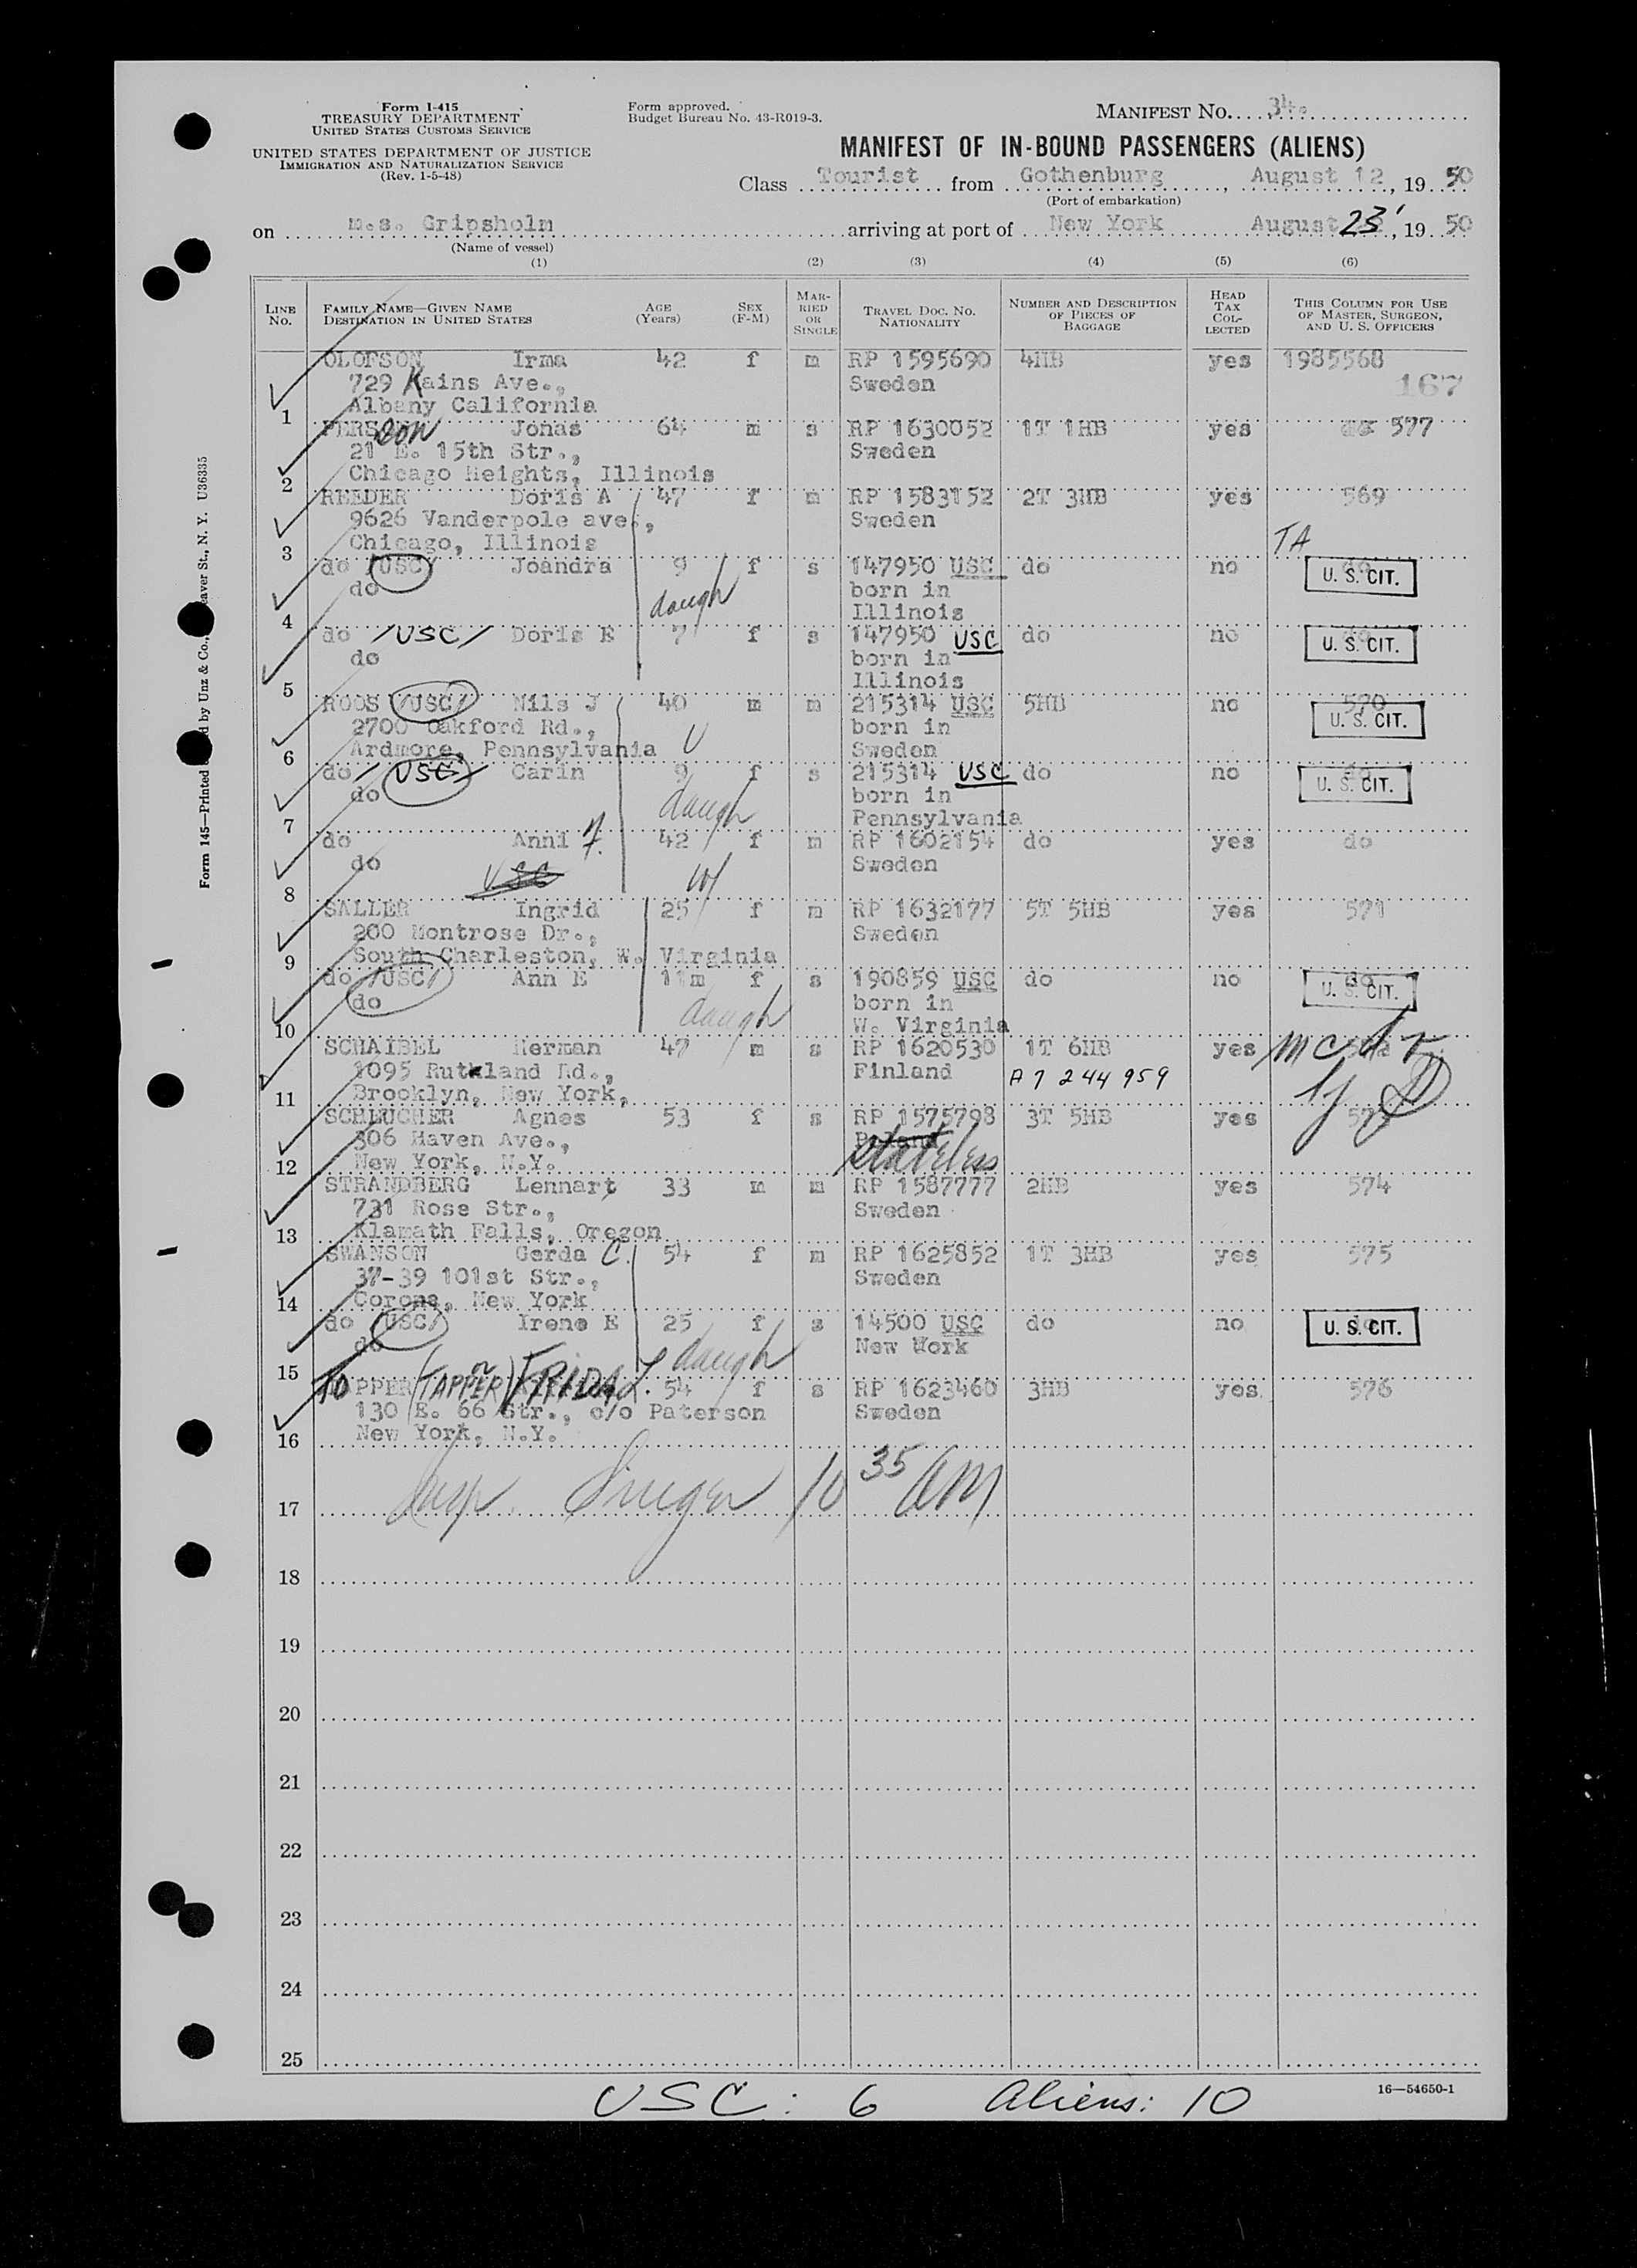 Form I-415
TREASURY DEPARTMENT
UNITED STATES CUSTOMS SERVICE
UNITED STATES DEPARTMENT OF JUSTICE
IMMIGRATION AND NATURALIZATION SERVICE
(Rev. 1-5-48)
Form approved.
Budget Bureau No. 43-R019-3.
MANIFEST No. 34
MANIFEST OF IN-BOUND PASSENGERS (ALIENS)
Class Tourist from Gothenburg, August 12, 1950
(Port of embarkation)
on m.s. Gripsholm arriving at port of New York August 23, 1950
(Name of vessel)
(1) (2) (3) (4) (5) (6)
LINE No. FAMILY NAME—GIVEN NAME DESTINATION IN UNITED STATES AGE (Years) SEX (F-M) MARRIED OR SINGLE TRAVEL DOC. NO. NATIONALITY NUMBER AND DESCRIPTION OF PIECES OF BAGGAGE HEAD TAX COLLECTED THIS COLUMN FOR USE OF MASTER, SURGEON, AND U. S. OFFICERS
OLOFSON Irma 42 f m RP 1595690 4HB yes 1985568
729 Kains Ave., Sweden 167
1 Albany California
PERSSON Jonas 64 m s RP 1630052 1T 1HB yes 577
21 E. 15th Str., Sweden
2 Chicago Heights, Illinois
REEDER Doris A 47 f m RP 1583152 2T 3HB yes 569
9626 Vanderpole ave., Sweden
3 Chicago, Illinois TA
do /USC/ Joandra 9 f s 147950 USC do no do U. S. CIT.
do born in
4 daugh Illinois
do /USC/ Doris E 7 f s 147950 USC do no do U. S. CIT.
do born in
5 Illinois
ROOS /USC/ Nils J 40 m m 215314 USC 5HB no 570 U. S. CIT.
2700 Oakford Rd., born in
6 Ardmore, Pennsylvania Sweden
do /USC/ Carin 9 f s 215314 USC do no do U. S. CIT.
do born in
7 daugh Pennsylvania
do Anni F. 42 f m RP 1602154 do yes do
do Sweden
8 USC W
SALLER Ingrid 25 f m RP 1632177 5T 5HB yes 571
200 Montrose Dr., Sweden
9 South Charleston, W. Virginia
do /USC/ Ann E 11m f s 190859 USC do no do U. S. CIT.
do born in
10 daugh W. Virginia
SCHAIBEL Herman 47 m s RP 1620530 1T 6HB yes
1095 Rutkland Rd., Finland A7 244 959
11 Brooklyn, New York,
SCHLUCHER Agnes 53 f s RP 1575798 3T 5HB yes
306 Haven Ave., Poland stateless
12 New York, N.Y.
STRANDBERG Lennart 33 m m RP 1587777 2HB yes 574
731 Rose Str., Sweden
13 Klamath Falls, Oregon
SWANSON Gerda C. 54 f m RP 1625852 1T 3HB yes 575
37-39 101st Str., Sweden
14 Corona, New York
do /USC/ Irene E 25 f s 14500 USC do no U. S. CIT.
do New Work
15 daugh
TOPPER (or TAPPER) FRIDA L. 54 f s RP 1623460 3HB yes 576
130 E. 66 Str., c/o Paterson Sweden
16 New York, N.Y.
17 Insp. 10 35 AM
18
19
20
21
22
23
24
25
16—54650-1
USC: 6 Aliens: 10
Form 145—Printed by Unz & Co., eaver St., N. Y. U36335